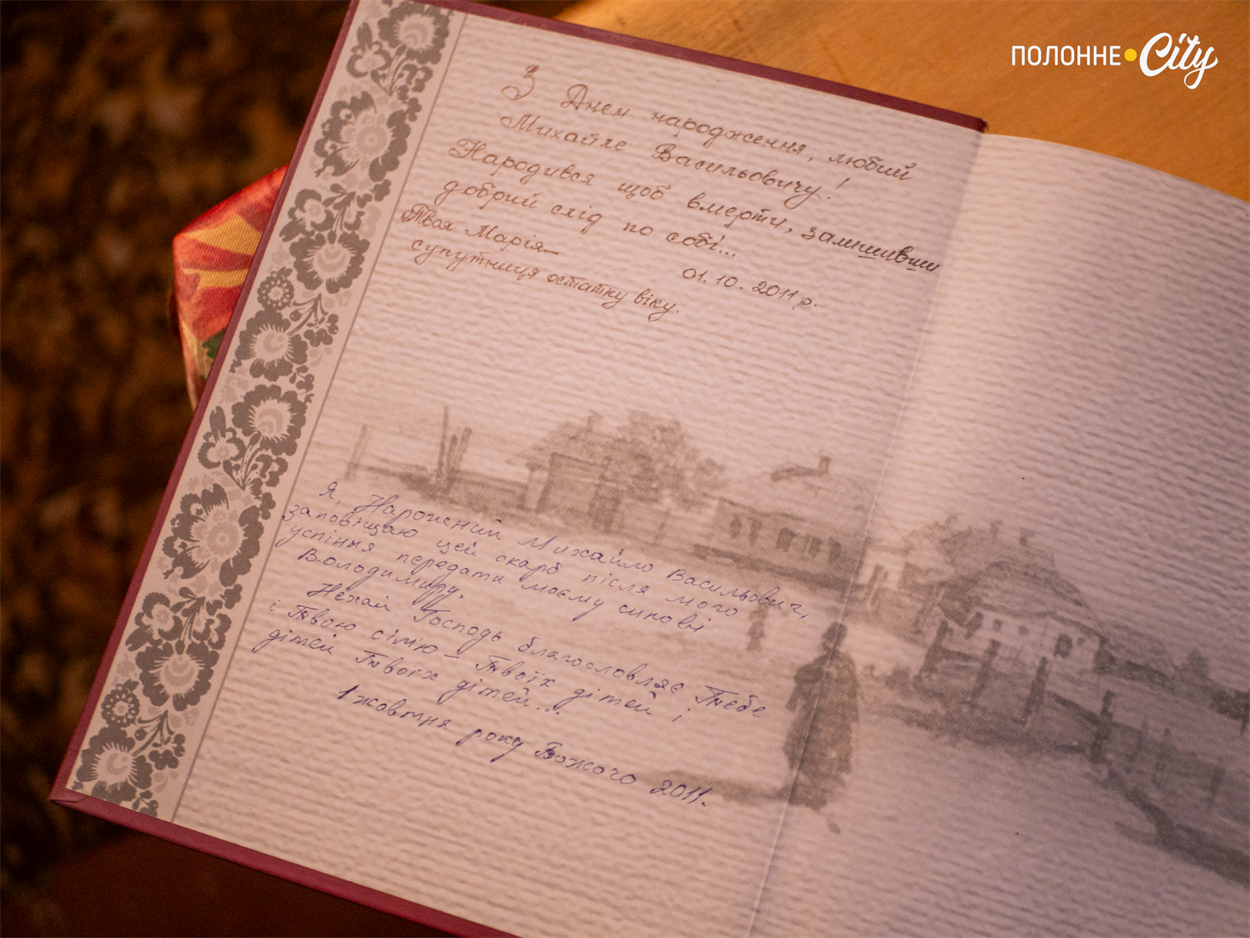 ПОЛОННЕ City
З Днем народження, любий
Михайле Васильовичу!
Народився щоб вмерти, залишивши
добрий слід по собі...
01.10.2011 р.
Твоя Марія—
супутниця остатку віку.
Я, Нарожний Михайло Васильович,
заповіщаю цей скарб після мого
успіння передати моєму синові
Володимиру.
Нехай Господь благословляє Тебе
і Твою сім'ю – Твоїх дітей і
дітей Твоїх дітей...
1 жовтня року Божого 2011.